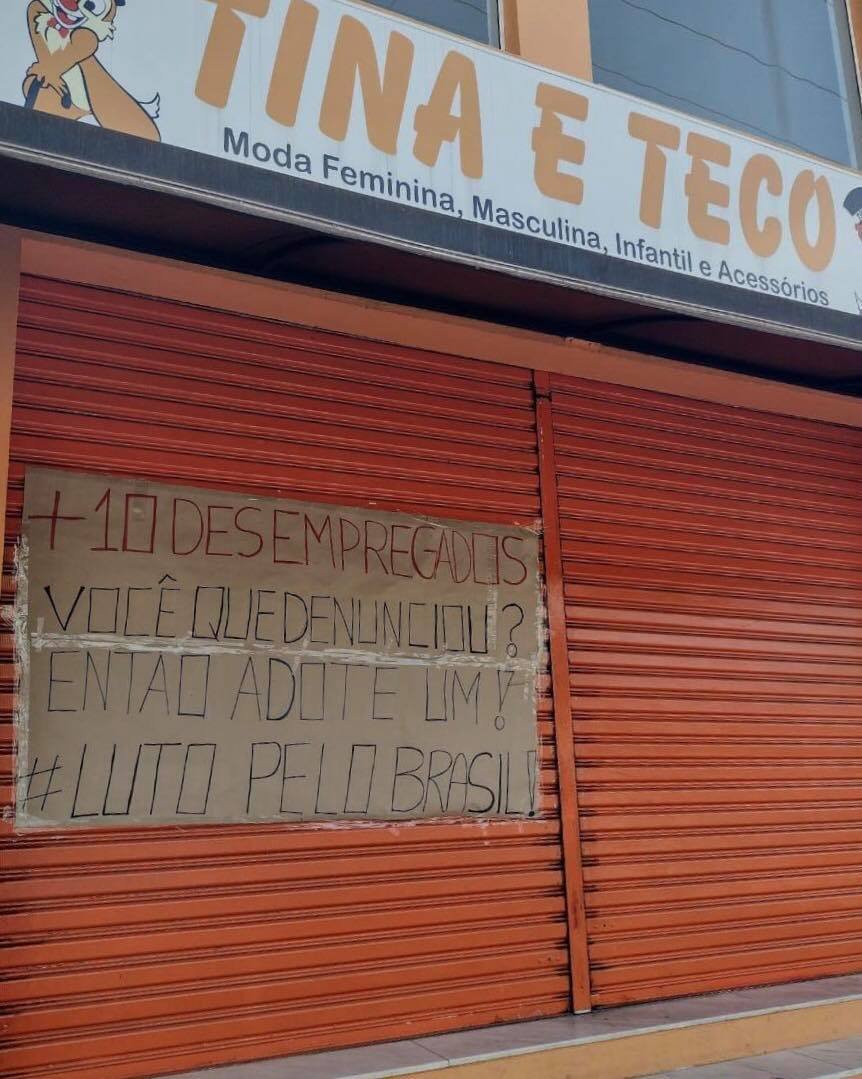 TINA E TECO
Moda Feminina, Masculina, Infantil e Acessórios
+10 DESEMPREGADOS
VOCÊ QUE DENUNCIOU?
ENTAO ADOTE UM!
#LUTO PELO BRASIL!